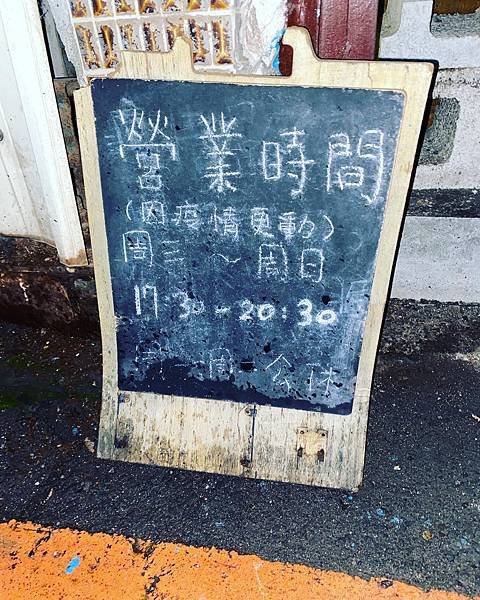 營業時間
(因疫情更動)
周三~周日
17:30-20:30
周一周二公休